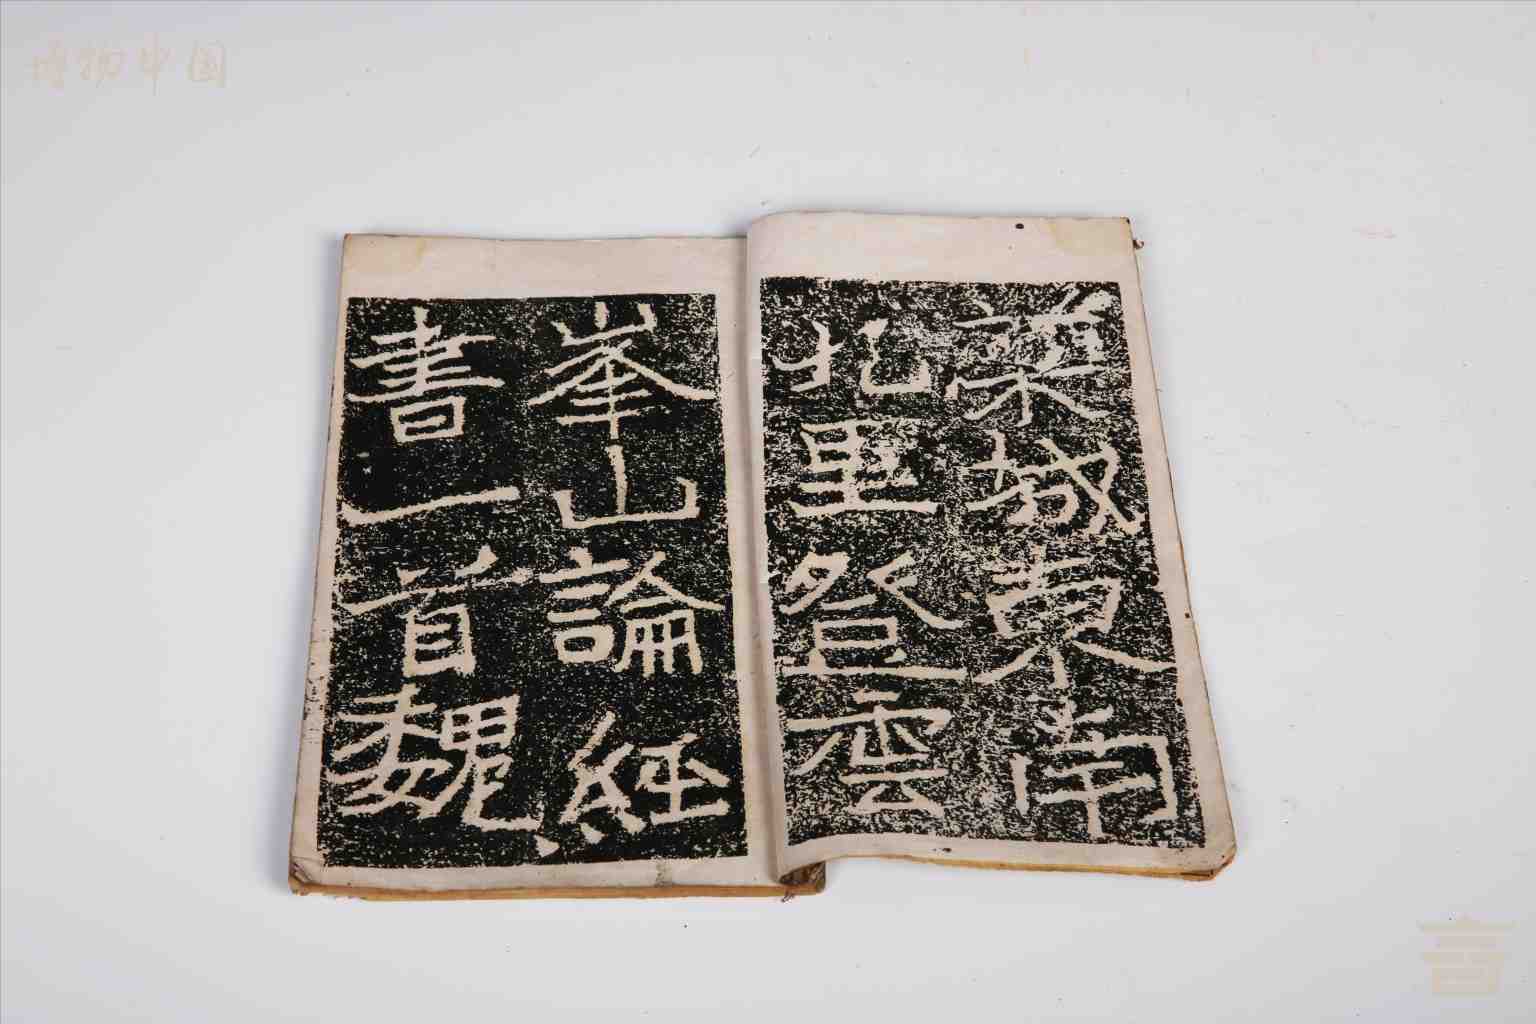 博物中国
萊城東南
九里登雲
峯山論經
書一首魏